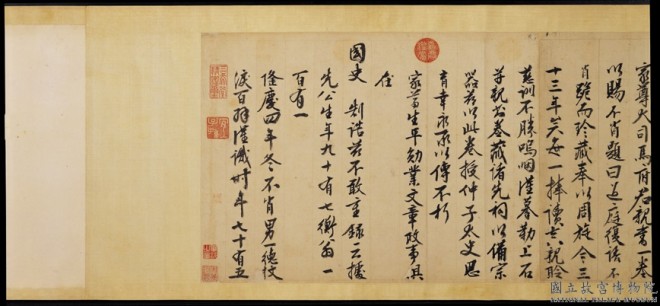 家尊大司馬府君親書一卷
以賜不肖題曰過庭復語不
肖璲而珍藏奉以周旋今三
十三年矣每一捧讀
慈訓不勝嗚咽謹摹勒上石
並親書卷藏諸先祠以備宗
器茲以此卷授仲子太史思
育幸永承以傳不朽
家翁生平勳業文章政事具
在
國史 制誥茲不敢重錄云據
先公生年九十有七衡翁一
百有一
隆慶四年冬不肖男一德
淚百拜謹識時年七十有五
國立故宮博物院